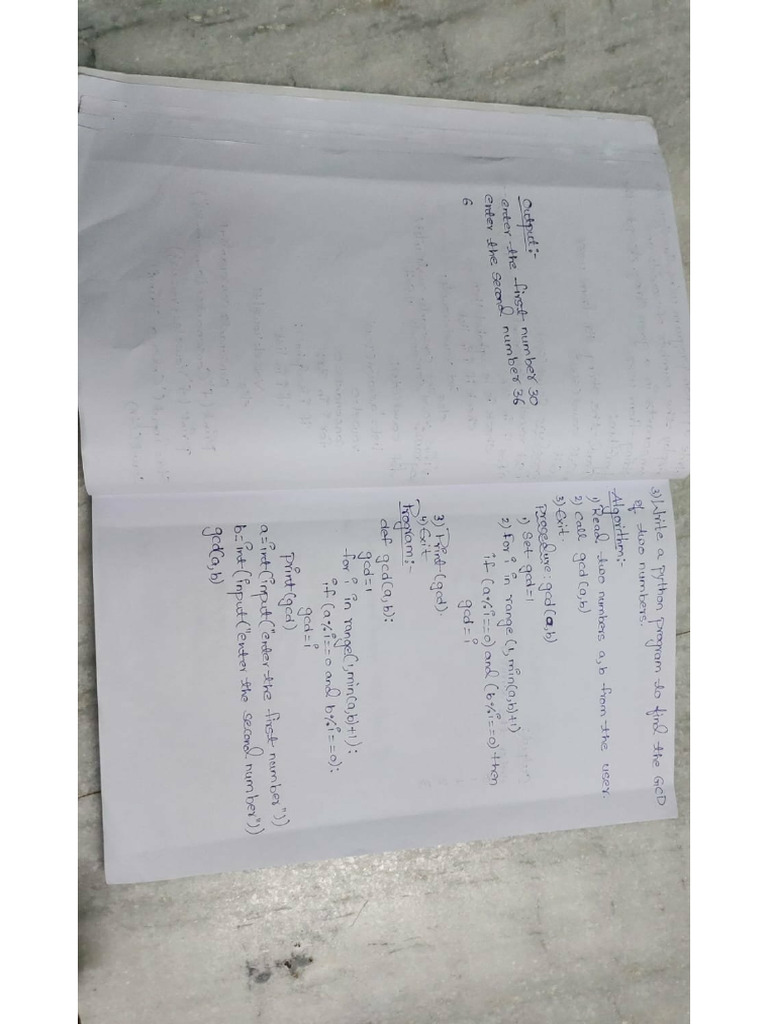 Output:-
enter the first number 30
enter the second number 36
6
3) Write a python program to find the GCD
of two numbers.
Algorithm:-
1) Read two numbers a,b from the user.
2) call gcd(a,b)
3) Exit.
Procedure: gcd(a,b)
1) Set gcd=1
2) for i in range(1, min(a,b)+1)
if (a%i==0) and (b%i==0) then
gcd=i
3) Print(gcd).
4) Exit
Program:-
def gcd(a,b):
gcd=1
for i in range(1,min(a,b)+1):
if(a%i==0 and b%i==0):
gcd=i
print(gcd)
a=int(input("enter the first number"))
b=int(input("enter the second number"))
gcd(a,b)